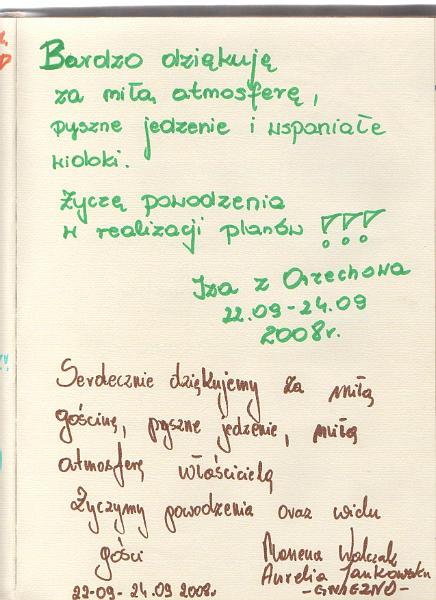 Bardzo dziękują
za miłą atmosferę,
pyszne jedzenie i wspaniałe
widoki.
Życzę powodzenia
w realizacji planów !!!
Iza z Orzechowa
22.09-24.09
2008r.
Serdecznie dziękujemy za miłą
gościnę, pyszne jedzenie, miłą
atmosferę właścicielą
Życzymy powodzenia oraz wielu
gości
Marzena Walczak
Aurelia Jankowska
22-09-24.09 2008r.
-GNIEZNO-